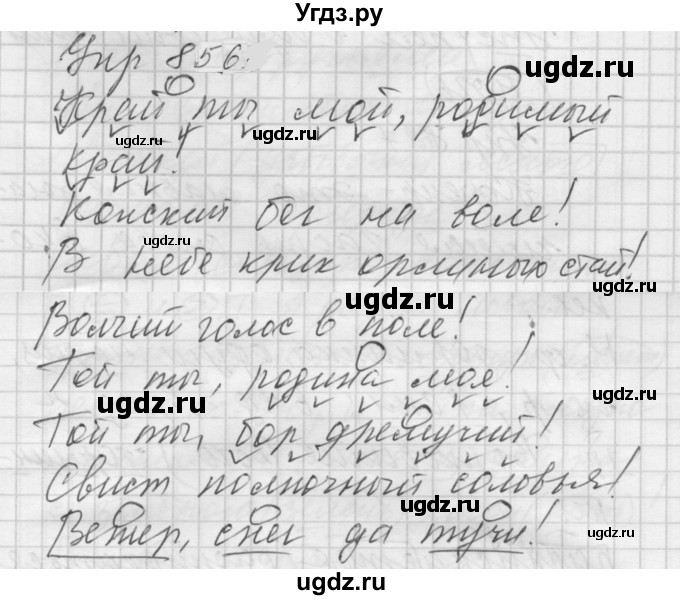 Угдз.ру
Упр 856.
ugdz.ru
Край ты мой, родимый
ugdz.ru
ugdz.ru
край!
ugdz.ru
Конский бег на воле!
ugdz.ru
В небе крик орлиных стай!
ugdz.ru
ugdz.ru
Волчий голос в поле!
Гой ты, родина моя!
ugdz.ru
ugdz.ru
Гой ты, бор дремучий!
ugdz.ru
Свист полночный соловья!
ugdz.ru
ugdz.ru
Ветер, снег да тучи!
ugdz.ru
ugdz.ru